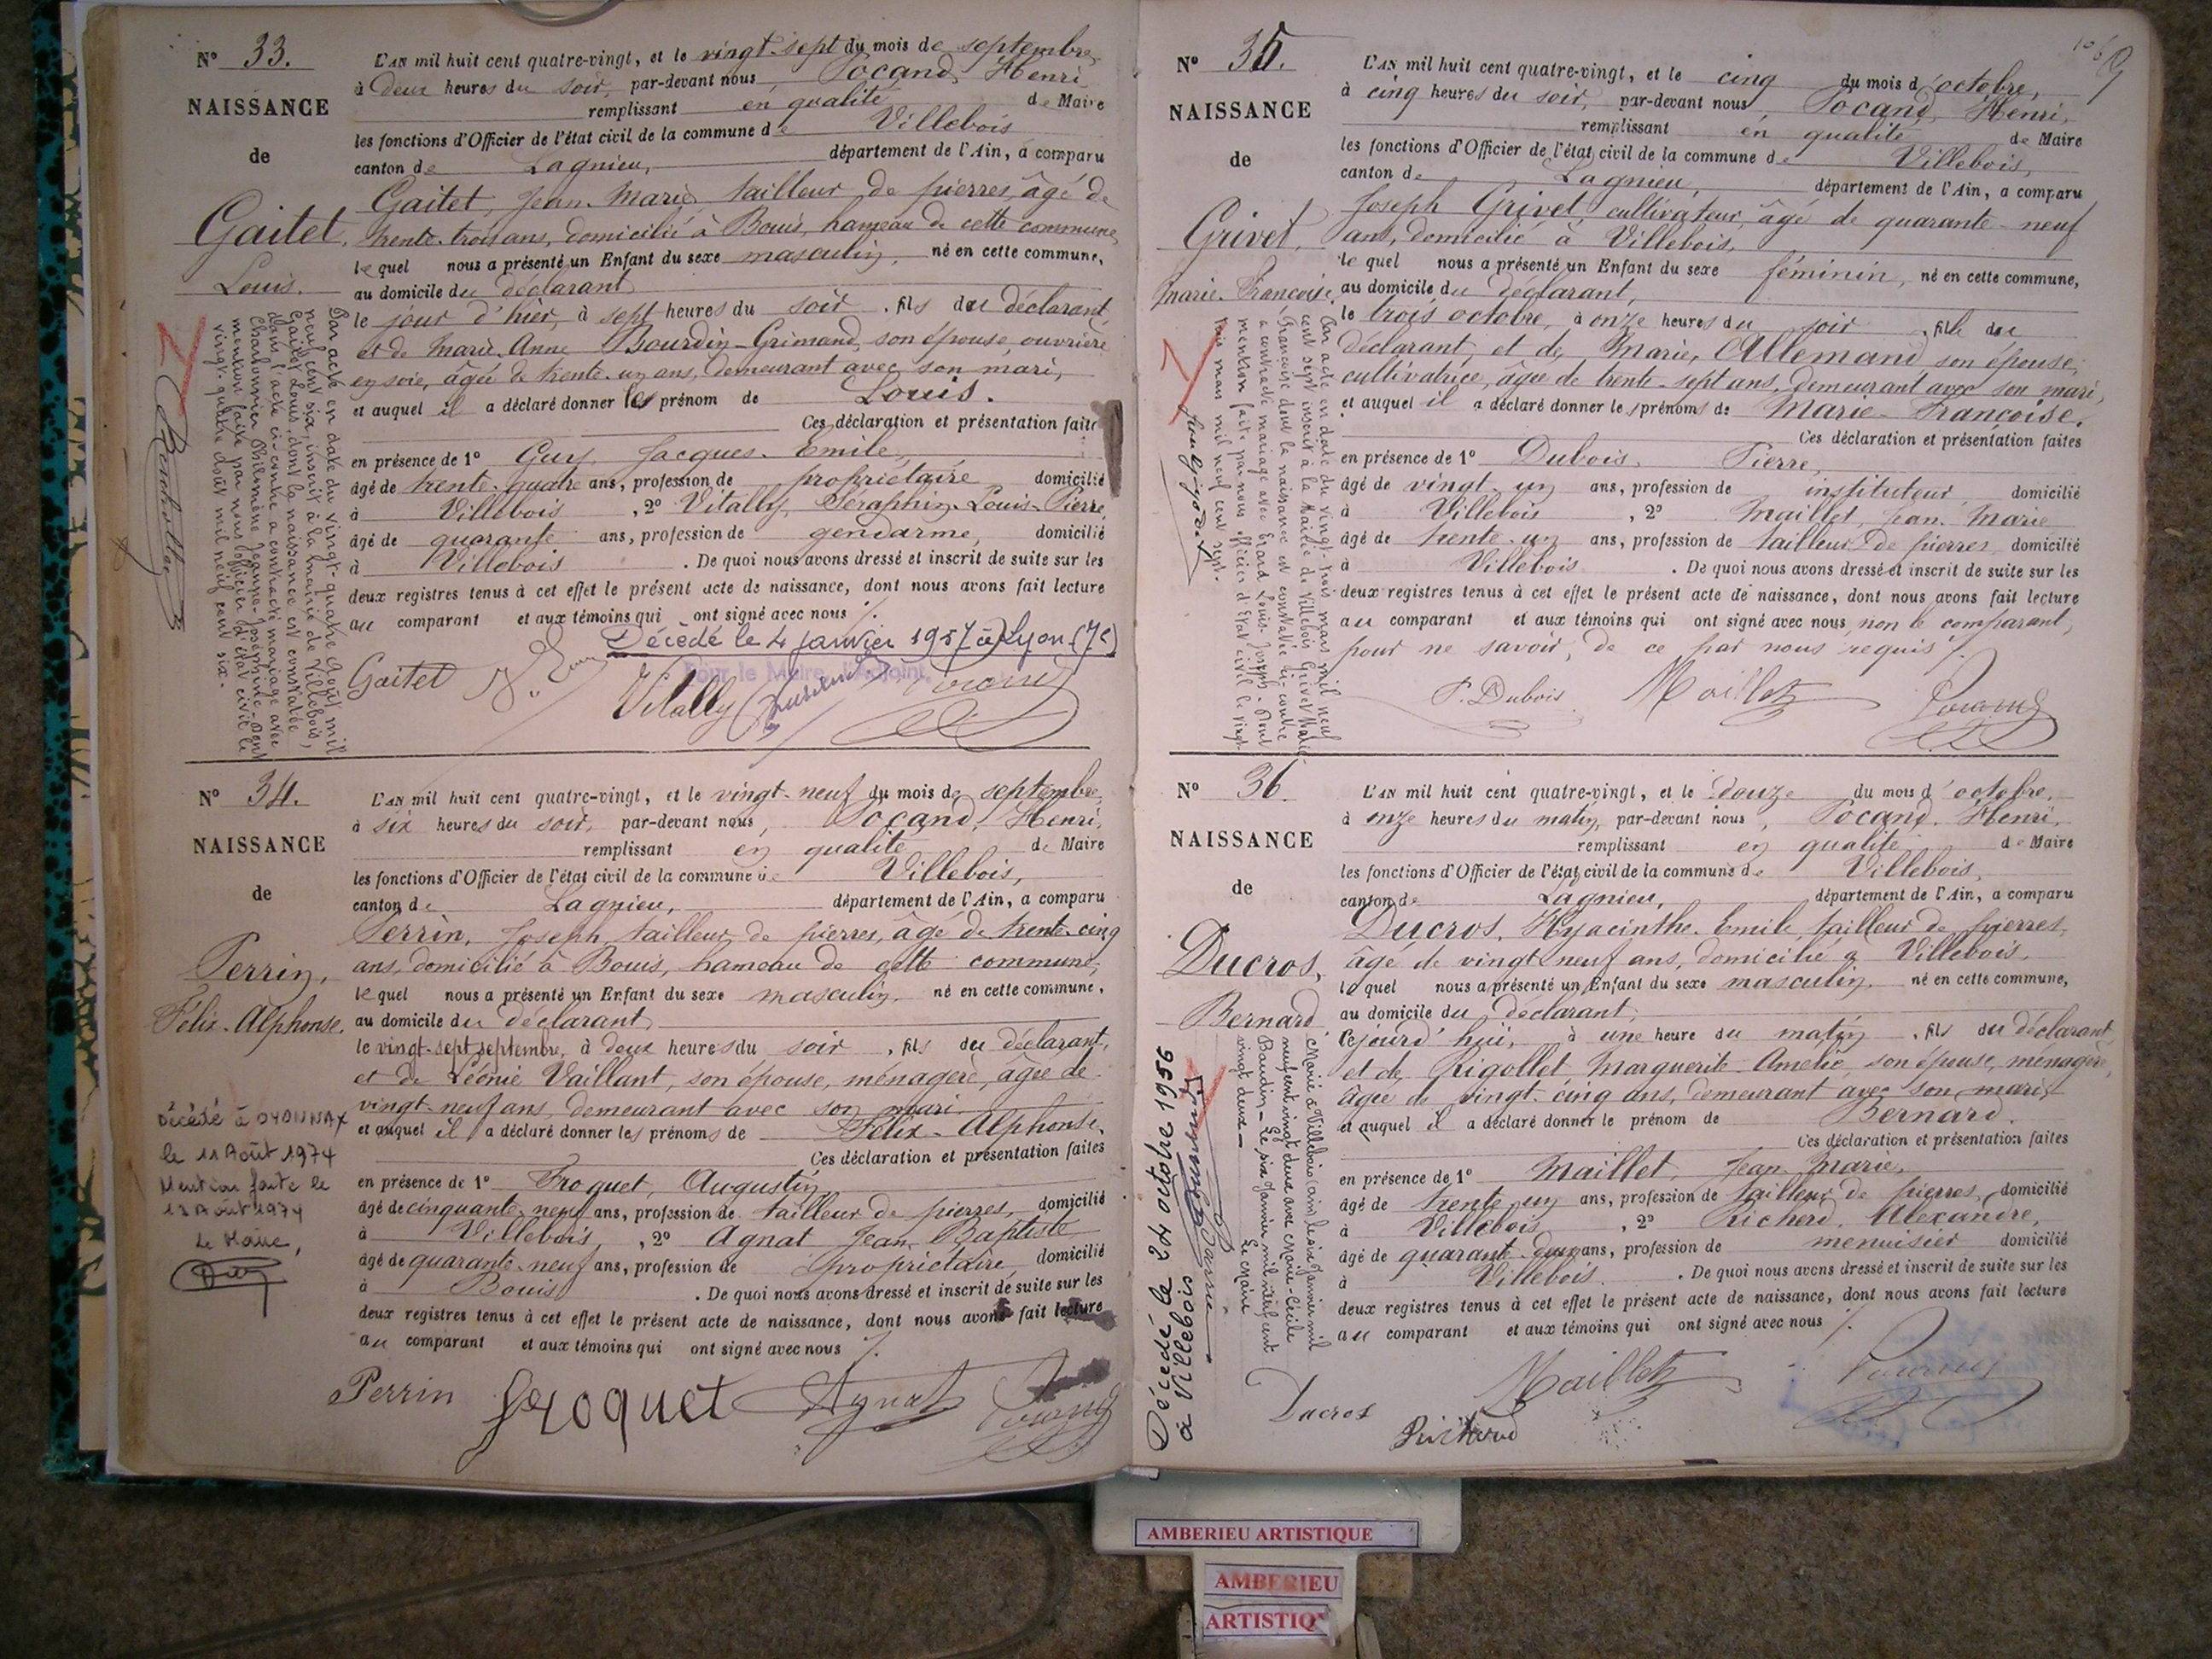 N° 33.
NAISSANCE
de
Gaitet,
Louis.
L'AN mil huit cent quatre-vingt, et le vingt-sept du mois de septembre,
à deux heures du soir, par-devant nous Pocand, Henri
remplissant en qualité de Maire
les fonctions d'Officier de l'état civil de la commune de Villebois
canton de Lagnieu, département de l'Ain, a comparu
Gaitet, Jean-Marie tailleur de pierres, âgé de
trente-trois ans, domicilié à Bouis, hameau de cette commune,
lequel nous a présenté un Enfant du sexe masculin, né en cette commune,
au domicile du déclarant
le jour d'hier, à sept heures du soir, fils du déclarant,
et de Marie-Anne Bourdin-Grimand, son épouse, ouvrière
en soie, âgée de trente-un ans, demeurant avec son mari,
et auquel il a déclaré donner le prénom de Louis.
Ces déclaration et présentation faites
en présence de 1° Guy, Jacques-Emile,
âgé de trente-quatre ans, profession de propriétaire domicilié
à Villebois, 2° Vitally, Séraphin-Louis-Pierre,
âgé de quarante ans, profession de gendarme, domicilié
à Villebois. De quoi nous avons dressé et inscrit de suite sur les
deux registres tenus à cet effet le présent acte de naissance, dont nous avons fait lecture
au comparant et aux témoins qui ont signé avec nous
Décédé le 4 janvier 1957 à Lyon (7e)
Pour le Maire, l'adjoint,
Gaitet Vitally
Par acte en date du vingt-quatre août mil
neuf cent six, inscrit à la mairie de Villebois,
Gaitet Louis, dont la naissance est constatée
dans l'acte ci-contre a contracté mariage avec
Charbonnier Philomène Jeanne-Joséphine - Dont
mention faite par nous officier d'état civil le
vingt-quatre août mil neuf cent six.
N° 34.
NAISSANCE
de
Perrin,
Félix-Alphonse.
L'AN mil huit cent quatre-vingt, et le vingt-neuf du mois de septembre,
à six heures du soir, par-devant nous, Pocand, Henri,
remplissant en qualité de Maire
les fonctions d'Officier de l'état civil de la commune de Villebois,
canton de Lagnieu, département de l'Ain, a comparu
Perrin, Joseph, tailleur de pierres, âgé de trente-cinq
ans, domicilié à Bouis, hameau de cette commune,
lequel nous a présenté un Enfant du sexe masculin, né en cette commune,
au domicile du déclarant
le vingt-sept septembre, à deux heures du soir, fils du déclarant,
et de Léonie Vaillant, son épouse, ménagère, âgée de
vingt-neuf ans, demeurant avec son mari
et auquel il a déclaré donner les prénoms de Félix-Alphonse,
Ces déclaration et présentation faites
en présence de 1° Froquet, Augustin
âgé de cinquante-neuf ans, profession de tailleur de pierres, domicilié
à Villebois, 2° Agnat Jean-Baptiste
âgé de quarante-neuf ans, profession de propriétaire, domicilié
à Bouis. De quoi nous avons dressé et inscrit de suite sur les
deux registres tenus à cet effet le présent acte de naissance, dont nous avons fait lecture
au comparant et aux témoins qui ont signé avec nous
Perrin froquet Agnat
Décédé à OYONNAX
le 11 Août 1974
Mention faite le
13 Août 1974
Le Maire,
N° 35.
NAISSANCE
de
Grivet,
Marie-Françoise.
L'AN mil huit cent quatre-vingt, et le cinq du mois d'octobre,
à cinq heures du soir, par-devant nous, Pocand, Henri,
remplissant en qualité de Maire
les fonctions d'Officier de l'état civil de la commune de Villebois,
canton de Lagnieu, département de l'Ain, a comparu
Joseph Grivet, cultivateur, âgé de quarante-neuf
ans, domicilié à Villebois,
lequel nous a présenté un Enfant du sexe féminin, né en cette commune,
au domicile du déclarant,
le trois octobre, à onze heures du soir, fille du
déclarant et de Marie, Allemand son épouse,
cultivatrice, âgée de trente-sept ans, demeurant avec son mari,
et auquel il a déclaré donner les prénoms de Marie-Françoise.
Ces déclaration et présentation faites
en présence de 1° Dubois, Pierre,
âgé de vingt-un ans, profession de instituteur, domicilié
à Villebois, 2° Maillet, Jean-Marie
âgé de trente-un ans, profession de tailleur de pierres, domicilié
à Villebois. De quoi nous avons dressé et inscrit de suite sur les
deux registres tenus à cet effet le présent acte de naissance, dont nous avons fait lecture
au comparant et aux témoins qui ont signé avec nous, non le comparant,
pour ne savoir, de ce par nous requis
P. Dubois Maillet
Par acte en date du vingt-trois mars mil neuf
cent sept inscrit à la Mairie de Villebois Grivet Marie
Françoise dont la naissance est constatée ci-contre
a contracté mariage avec Louis-Joseph - Dont
mention faite par nous officier d'Etat civil le vingt
trois mars mil neuf cent sept.
N° 36.
NAISSANCE
de
Ducros,
Bernard
L'AN mil huit cent quatre-vingt, et le douze du mois d'octobre,
à onze heures du matin, par-devant nous, Pocand, Henri,
remplissant en qualité de Maire
les fonctions d'Officier de l'état civil de la commune de Villebois,
canton de Lagnieu, département de l'Ain, a comparu
Ducros, Hyacinthe-Emile, tailleur de pierres,
âgé de vingt-neuf ans, domicilié à Villebois,
lequel nous a présenté un Enfant du sexe masculin, né en cette commune,
au domicile du déclarant,
cejourd'hui, à une heure du matin, fils du déclarant,
et de Rigollet Marguerite-Amélie, son épouse, ménagère,
âgée de vingt-cinq ans, demeurant avec son mari
et auquel il a déclaré donner le prénom de Bernard.
Ces déclaration et présentation faites
en présence de 1° Maillet, Jean-Marie,
âgé de trente-un ans, profession de tailleur de pierres, domicilié
à Villebois, 2° Richerd, Alexandre,
âgé de quarante ans, profession de menuisier domicilié
à Villebois. De quoi nous avons dressé et inscrit de suite sur les
deux registres tenus à cet effet le présent acte de naissance, dont nous avons fait lecture
au comparant et aux témoins qui ont signé avec nous
Ducros Maillet
Marié à Villebois (Ain) le six Janvier mil
neuf cent vingt deux avec Marie-Cécile
Baudin - Le six Janvier mil neuf cent
vingt deux - Le Maire
Décédé le 24 octobre 1956
à Villebois
AMBERIEU ARTISTIQUE
AMBERIEU
ARTISTIQ